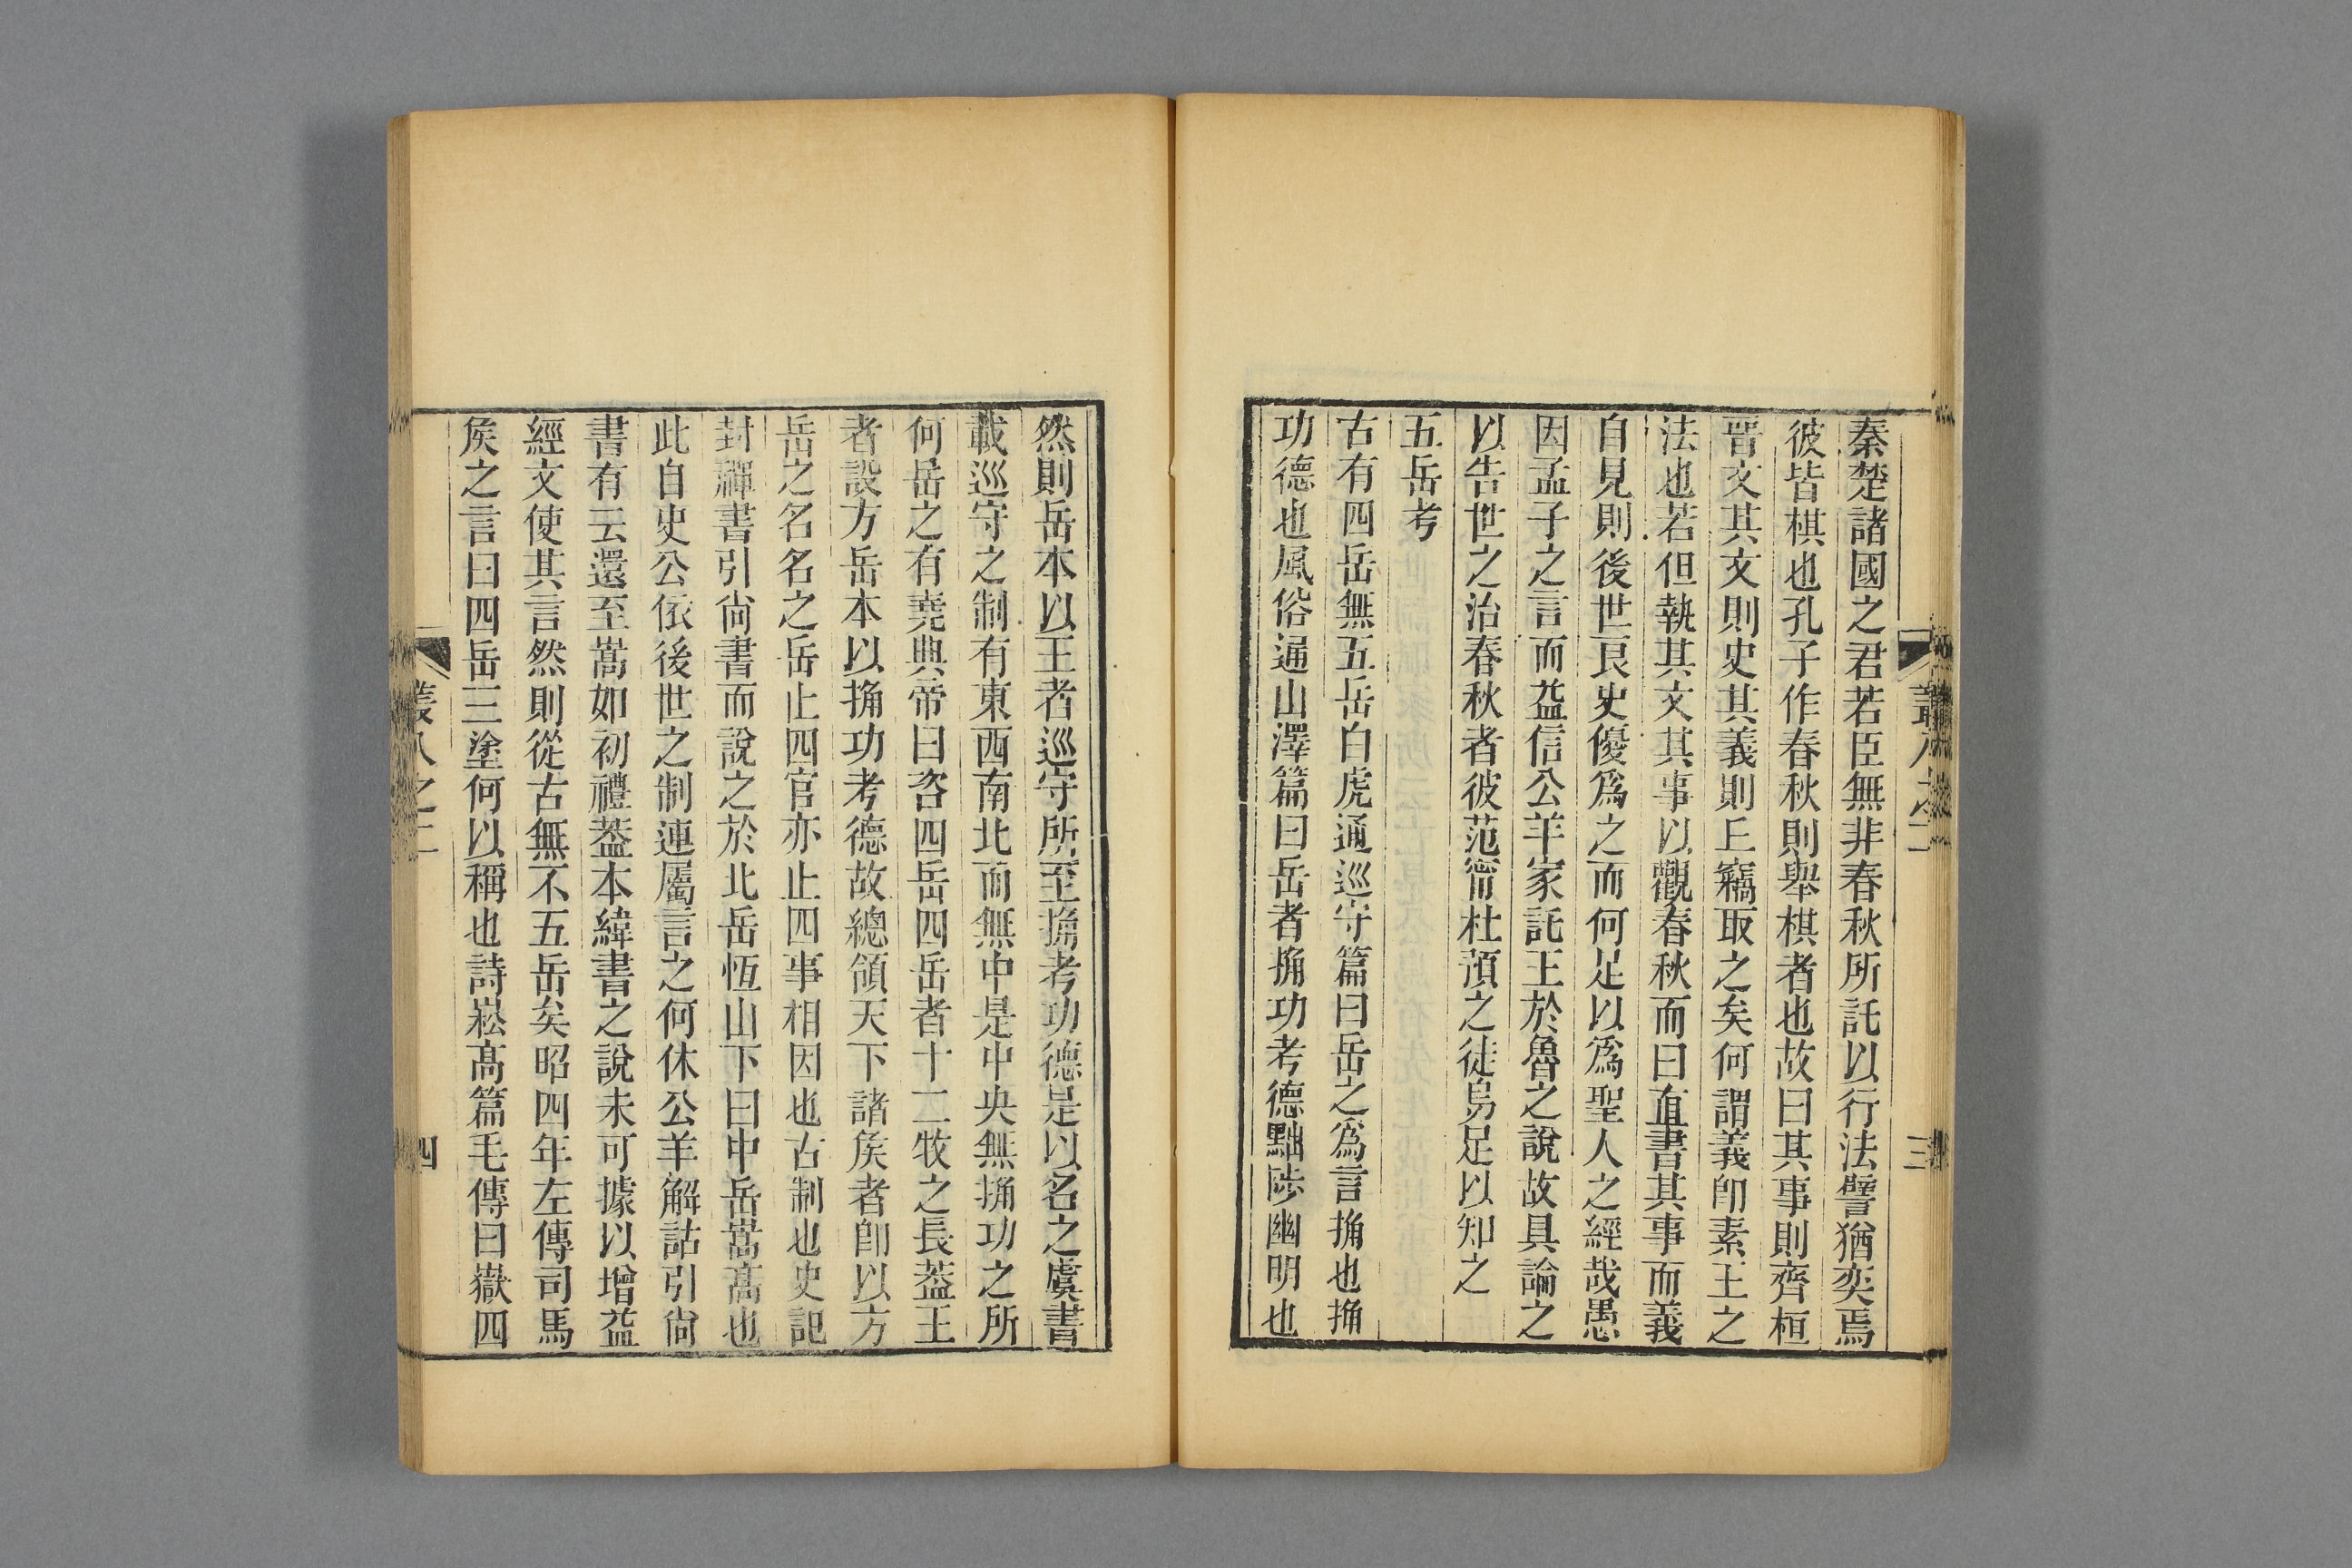 秦楚諸國之君若臣無非春秋所託以行法譬猶奕焉
彼皆棋也孔子作春秋則舉棋者也故曰其事則齊桓
晉文其文則史其義則丘竊取之矣何謂義卽素王之
法也若但執其文其事以觀春秋而曰直書其事而義
自見則後世良史優爲之而何足以爲聖人之經哉愚
因孟子之言而益信公羊家託王於魯之說故具論之
以告世之治春秋者彼范甯杜預之徒烏足以知之
五岳考
古有四岳無五岳白虎通巡守篇曰岳之爲言捔也捔
功德也風俗通山澤篇曰岳者捔功考德黜陟幽明也
叢八之二
三
然則岳本以王者巡守所至捔考功德是以名之虞書
載巡守之制有東西南北而無中是中央無捔功之所
何岳之有堯典帝曰咨四岳四岳者十二牧之長葢王
者設方岳本以捔功考德故總領天下諸矦者卽以方
岳之名名之岳止四官亦止四事相因也古制也史記
封禪書引尙書而說之於北岳恆山下曰中岳嵩高也
此自史公依後世之制連屬言之何休公羊解詁引尙
書有云還至嵩如初禮葢本緯書之說未可據以增益
經文使其言然則從古無不五岳矣昭四年左傳司馬
矦之言曰四岳三塗何以稱也詩崧高篇毛傳曰嶽四
叢八之二
四